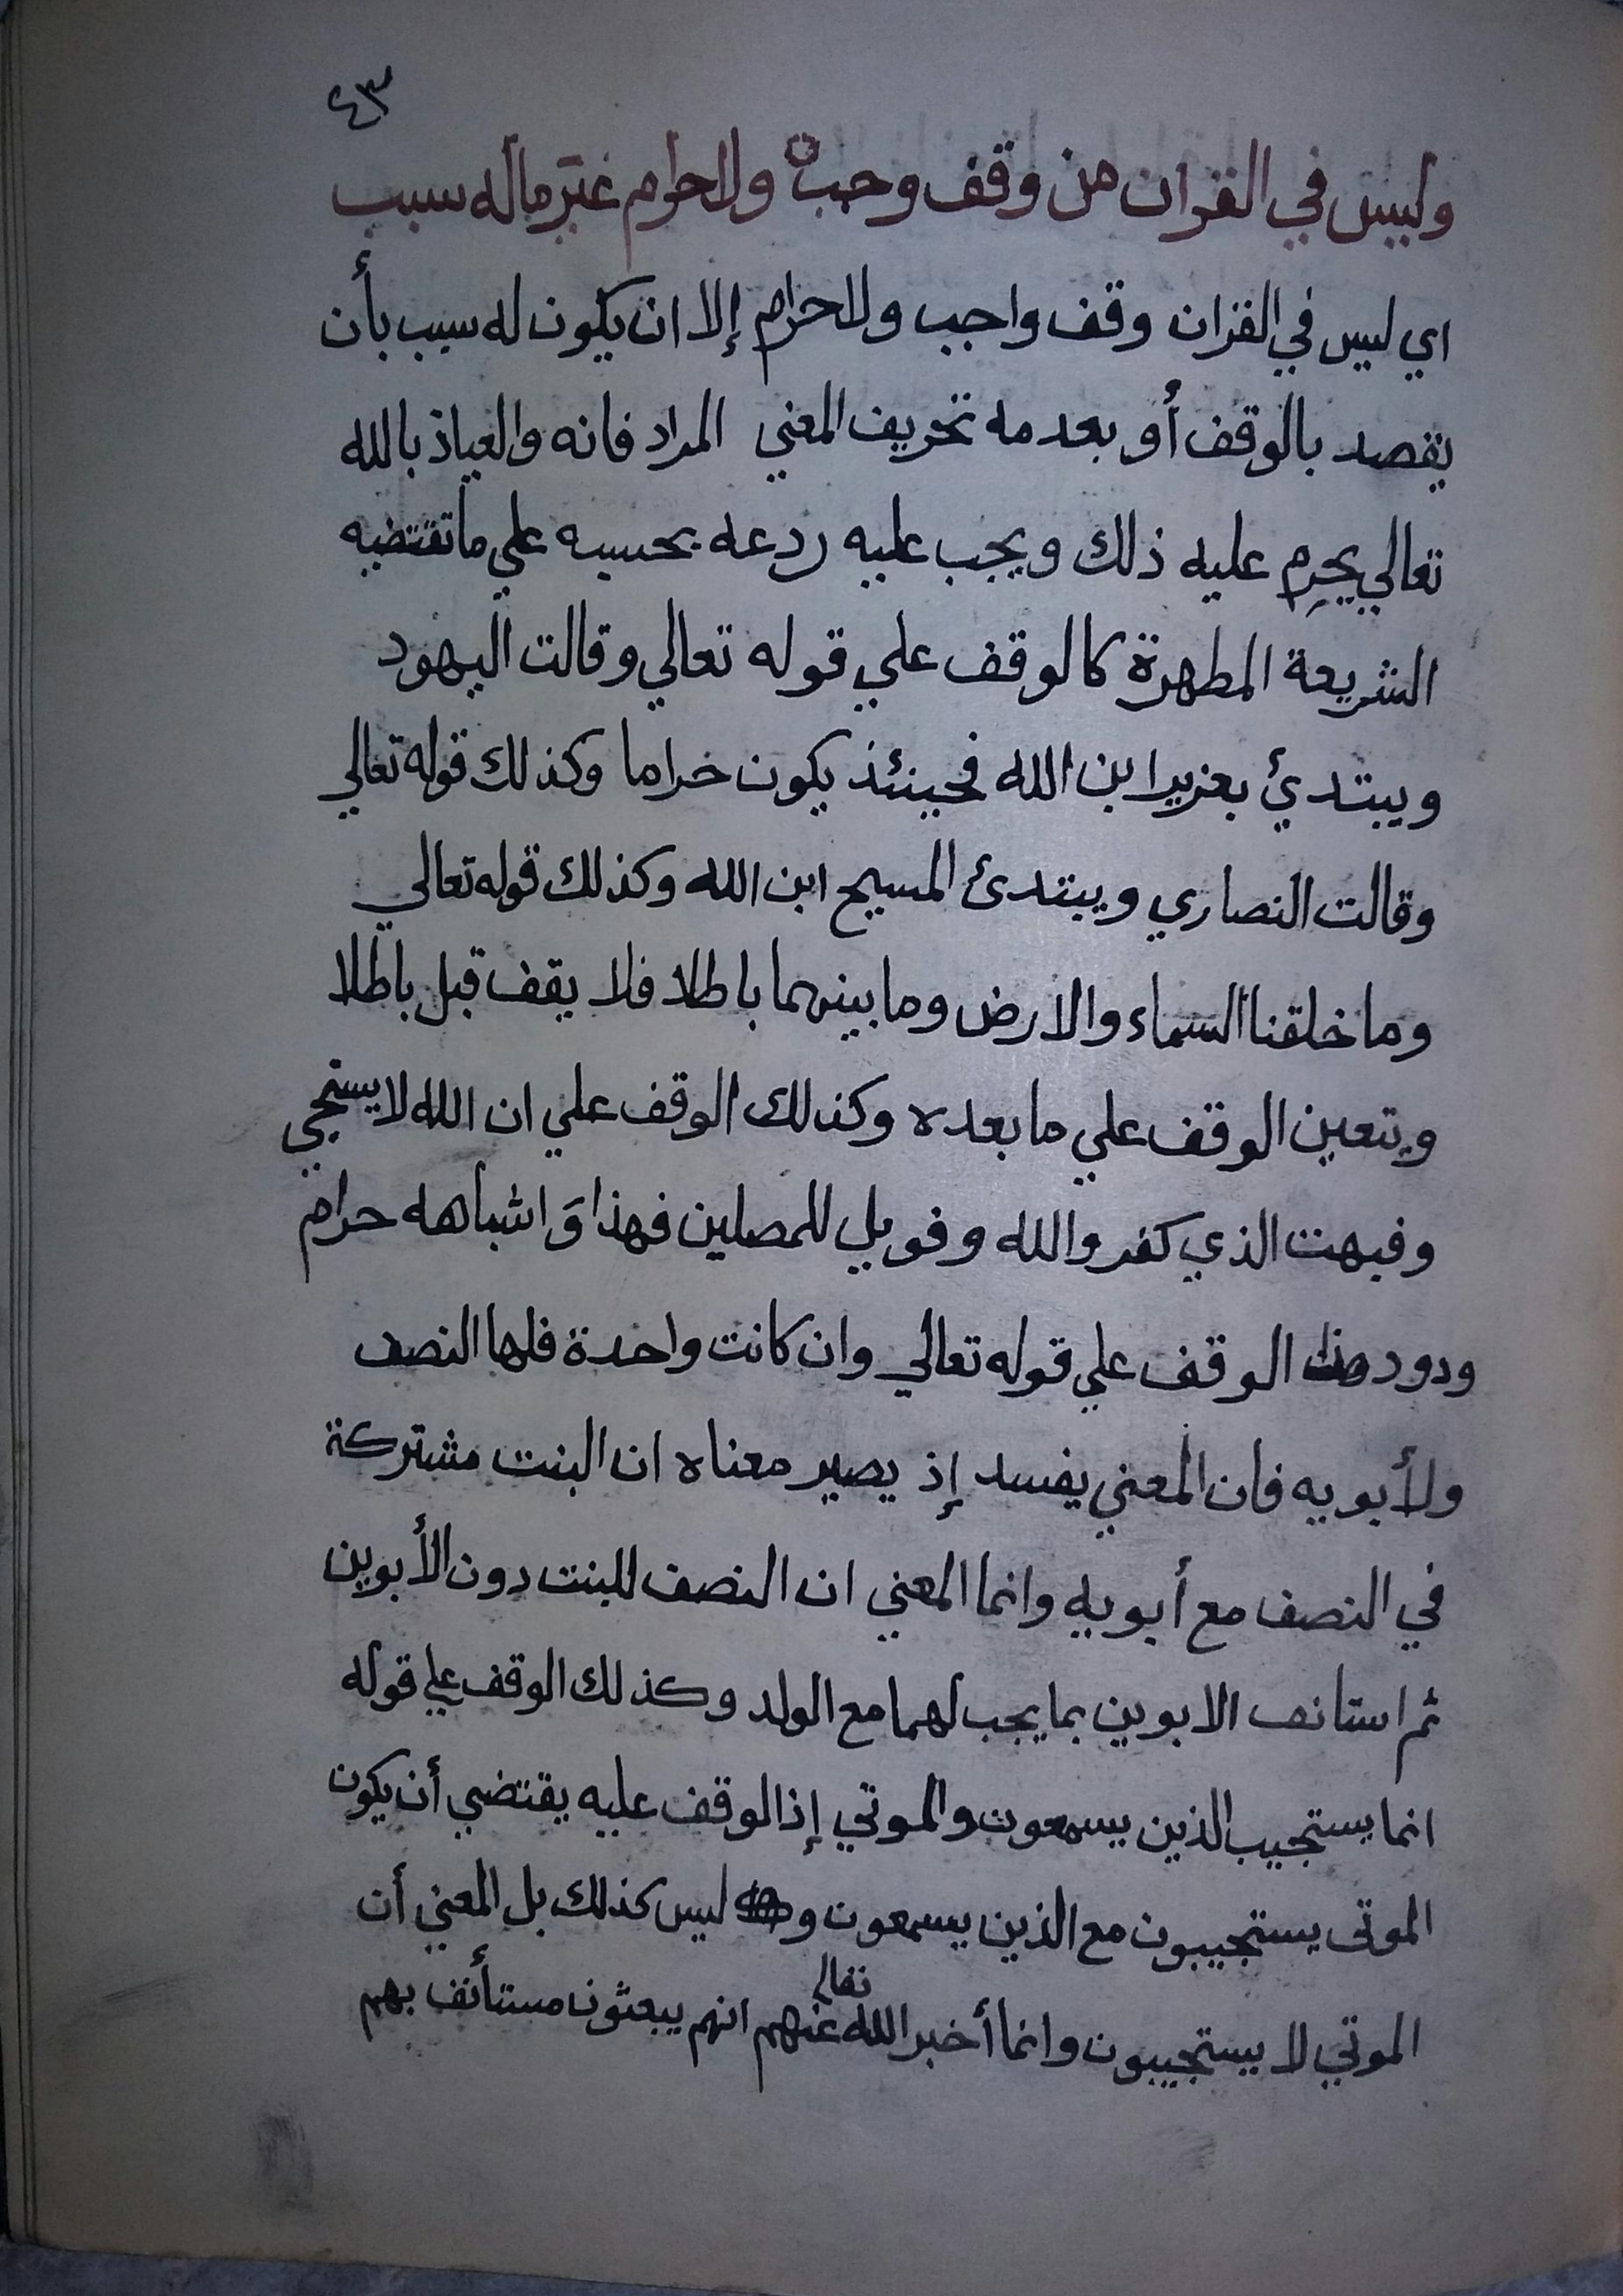 ٤٣
وليس في القران من وقف وجب ولا حرام غير ماله سبب
اي ليس في القران وقف واجب ولا حرام إلا ان يكون له سبب بأن
يقصد بالوقف أو بعدمه تحريف المعني المراد فانه والعياذ بالله
تعالي يحرم عليه ذلك ويجب عليه ردعه بحسبه علي ما تقتضيه
الشريعة المطهرة كالوقف علي قوله تعالي وقالت اليهود
ويبتدئ بعزير ابن الله فحينئذ يكون خراما وكذلك قوله تعالي
وقالت النصاري ويبتدئ المسيح ابن الله وكذلك قوله تعالي
وما خلقنا السماء والارض وما بينهما باطلا فلا يقف قبل باطلا
ويتعين الوقف علي ما بعده وكذلك الوقف علي ان الله لا يستحي
وفبهت الذي كفر والله وفويل للمصلين فهذا وَاشباهه حرام
ودود الوقف علي قوله تعالي وان كانت واحدة فلها النصف
ولأبويه فان المعني يفسد إذ يصير معناه ان البنت مشتركة
في النصف مع أبويه وانما المعني ان النصف للبنت دون الأبوين
ثم استانف الابوين بما يجب لهما مع الولد وكذلك الوقف علي قوله
انما يستجيب الذين يسمعون والموتي إذ الوقف عليه يقتضي أن يكون
الموتى يستجيبون مع الذين يسمعون و ليس كذلك بل المعني أن
الموتي لا يستجيبون وانما أخبر الله تعالي عنهم انهم يبعثون مستأنف بهم